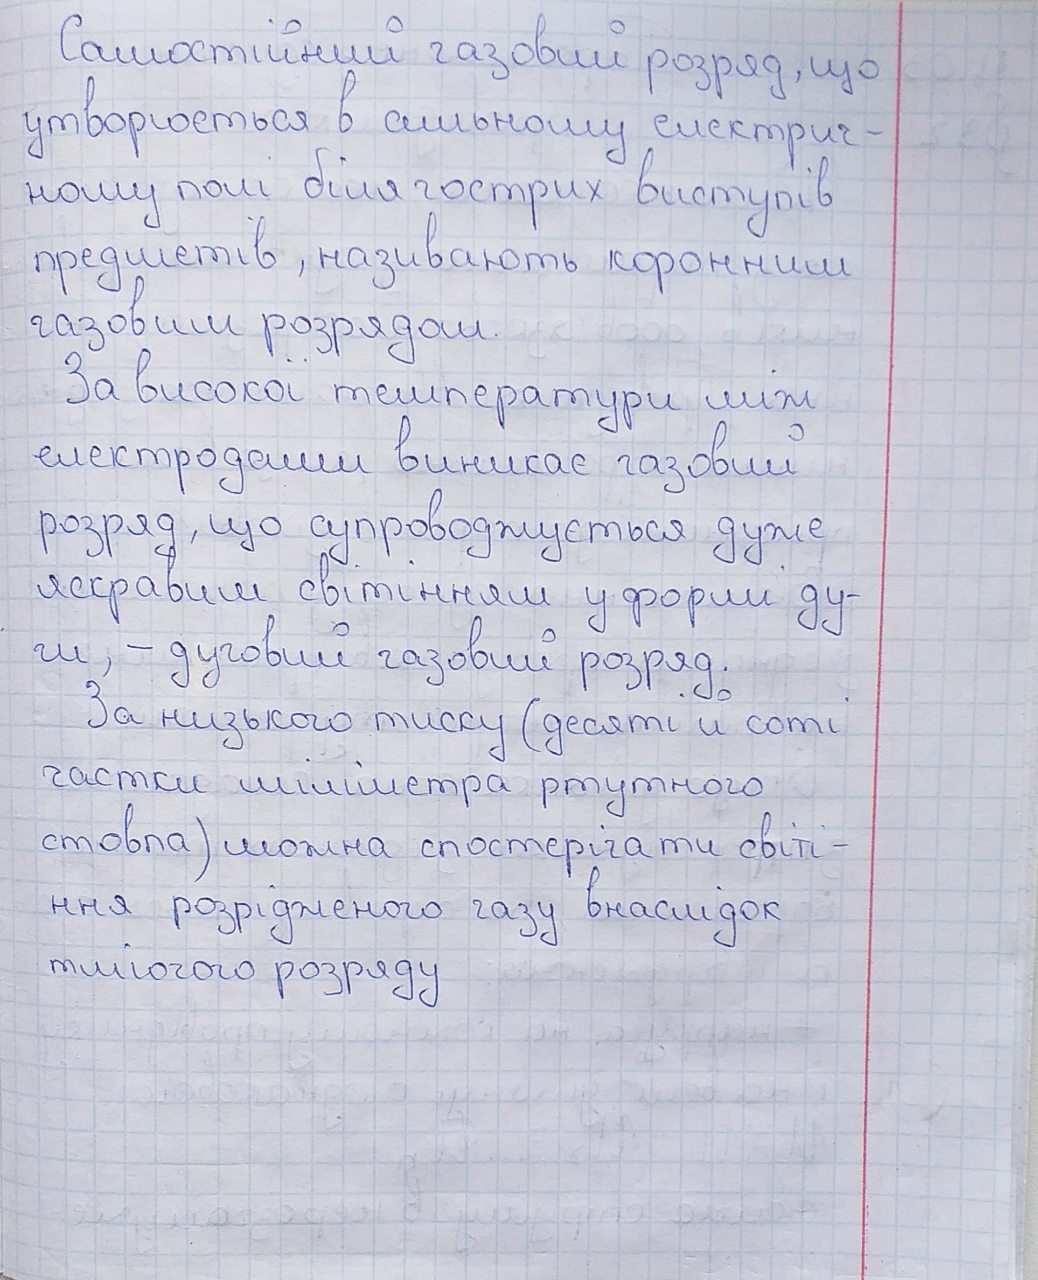 Самостійний газовий розряд, що
утворюється в сильному електрич-
ному полі біля гострих виступів
предметів, називають коронним
газовим розрядом.
За високої температури між
електродами виникає газовий
розряд, що супроводжується дуже
яскравим світінням у формі ду-
ги, – дуговий газовий розряд.
За низького тиску (десяті й соті
частки міліметра ртутного
стовпа) можна спостерігати світі-
ння розрідженого газу внаслідок
тліючого розряду